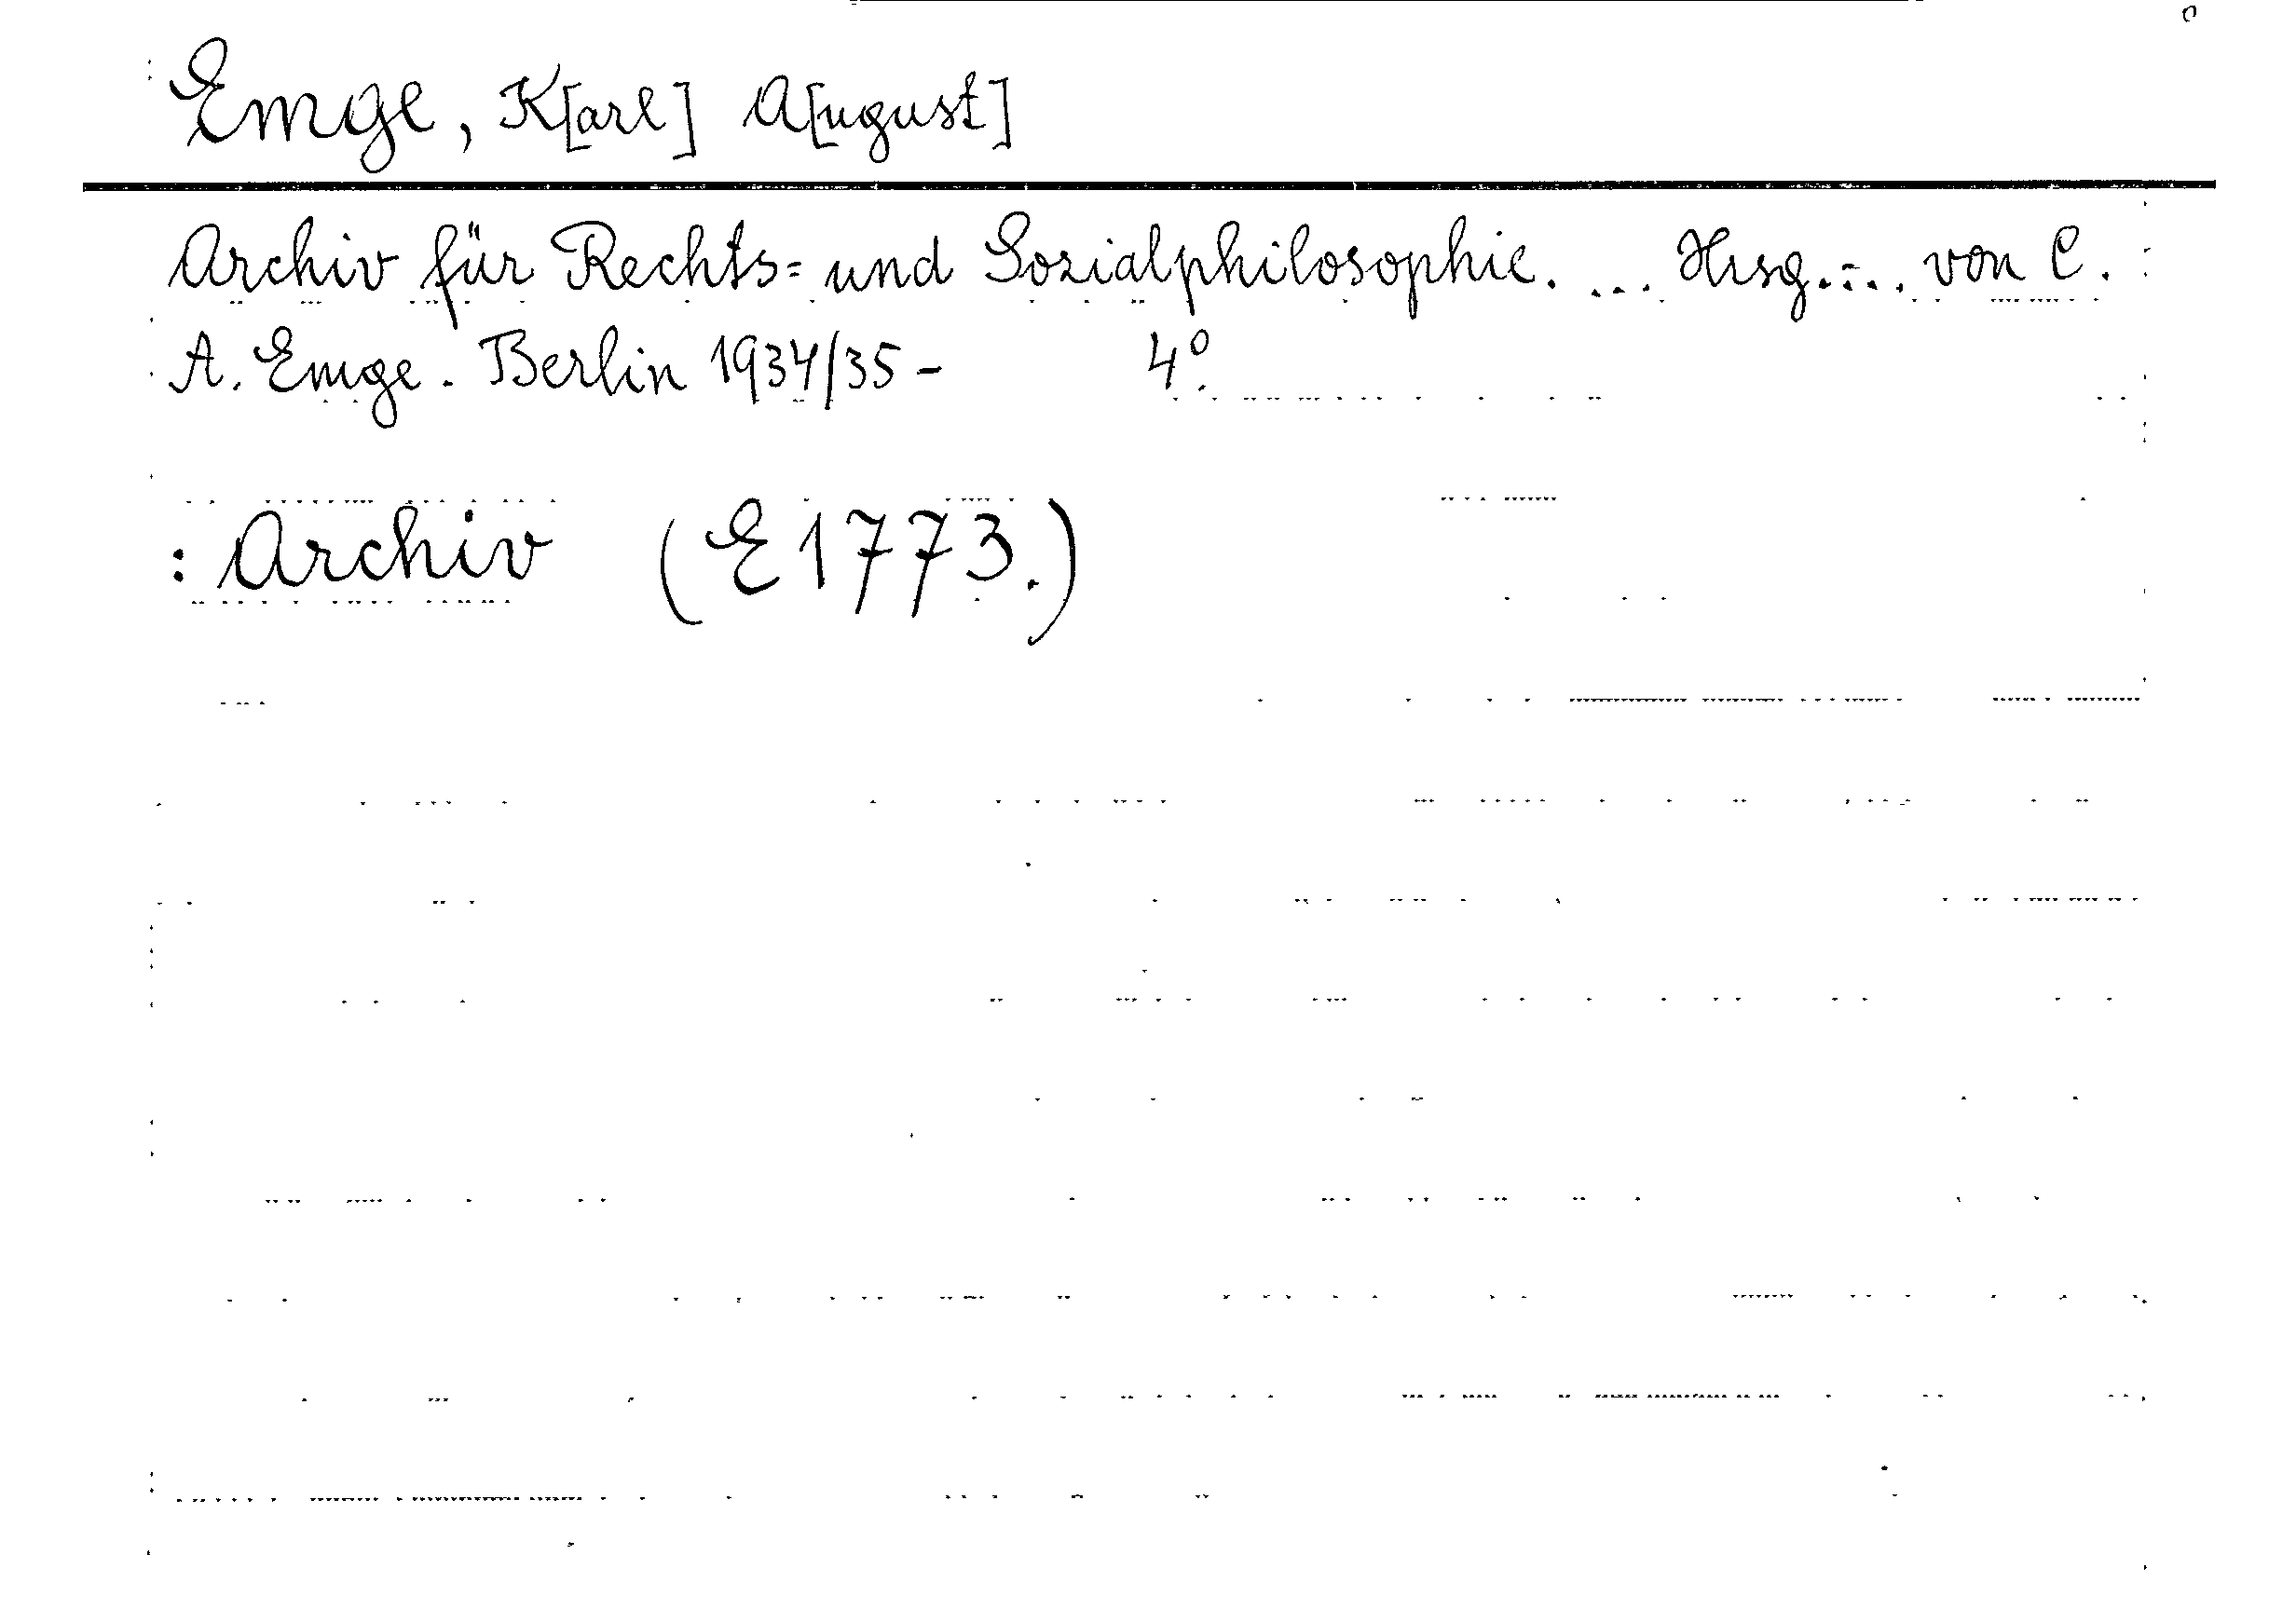 Emge, K[arl] A[ugust]
Archiv für Rechts= und Sozialphilosophie. ... Hrsg. ... von C.
A. Emge. Berlin 1934/35 - 4°.
: Archiv (E 1773.)